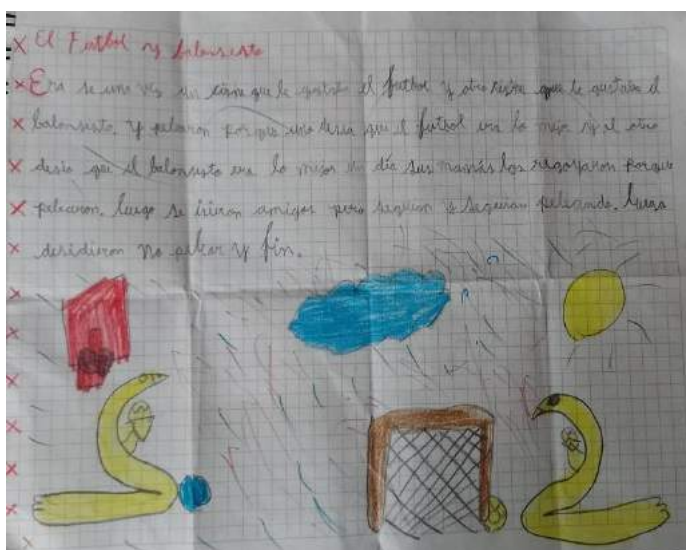 El Futbol y balonsesto
Era se una ves un sisne que le gustaba el futbol y otro sisne que le gustaba el
balonsesto. y pelearon porque uno desia que el futbol era lo mejor y el otro
desia que el balonsesto era lo mejor un día sus mamás los regañaron porque
pelearon. luego se isieron amigos pero seguian y seguian peleando. luego
desidieron no pelear y fin.